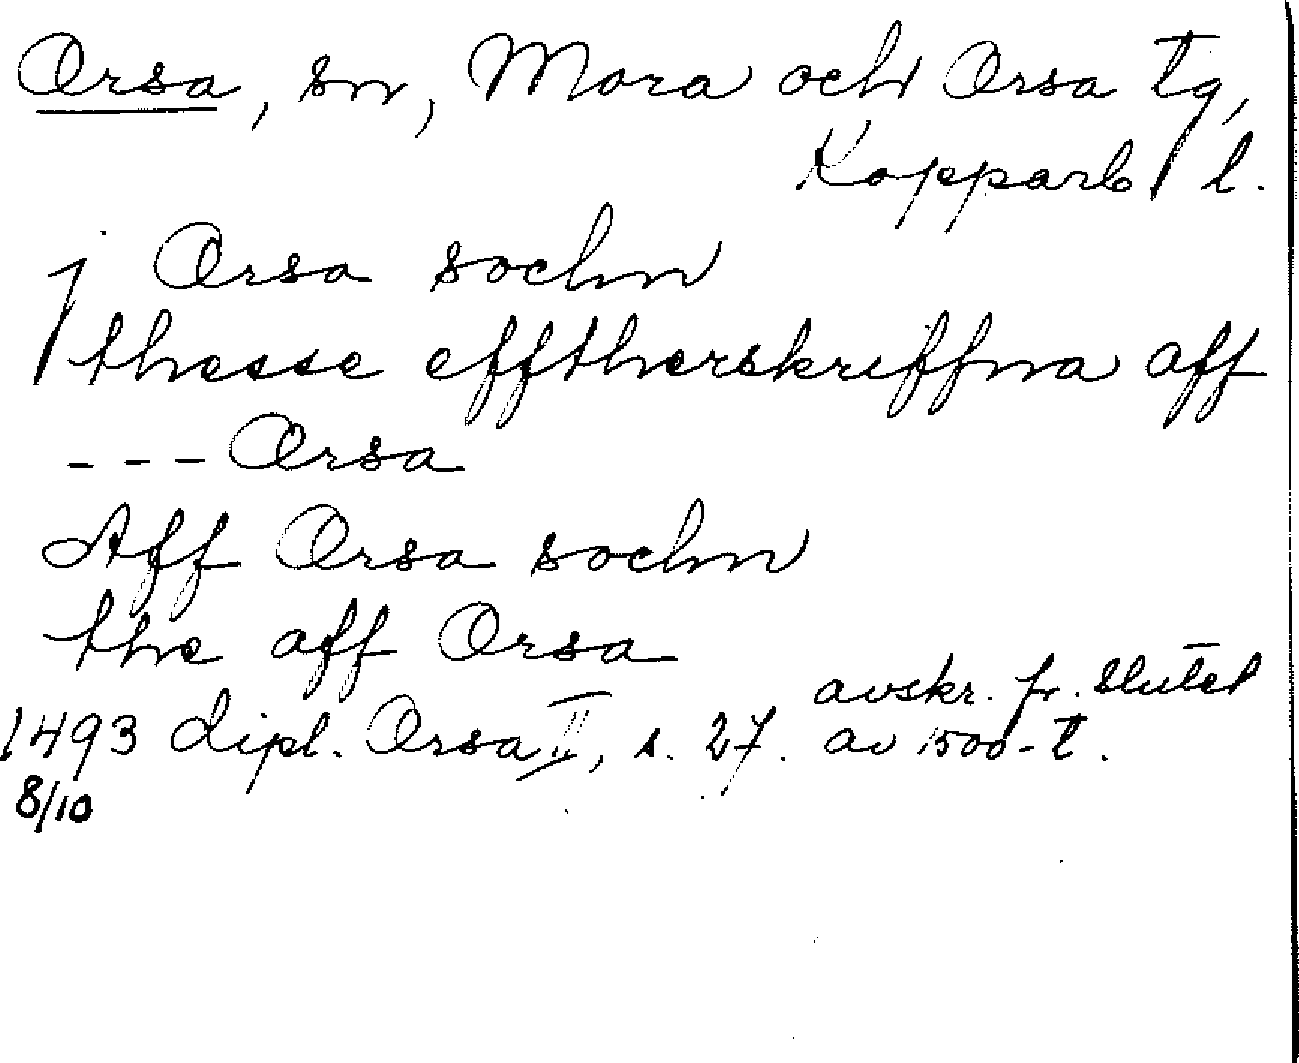 Orsa, sn, Mora och Orsa tg,
Kopparb l.
j Orsa sochn
thesse efftherskriffna aff
--- Orsa
Aff Orsa sochn
the aff Orsa
1493 dipl. Orsa II, s. 27. avskr. fr. slutet
av 1500-t.
8/10